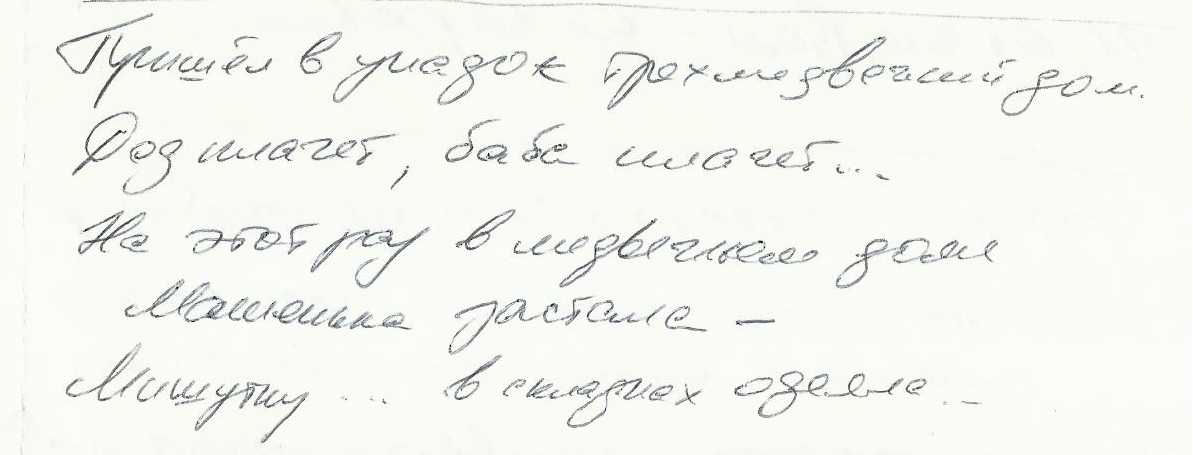 Пришёл в упадок трехмедвечий дом.
Дед плачет, баба плачет...
На этот раз в медвечьем доме
Машенька застала –
Мишутку ... в складках одеяла...